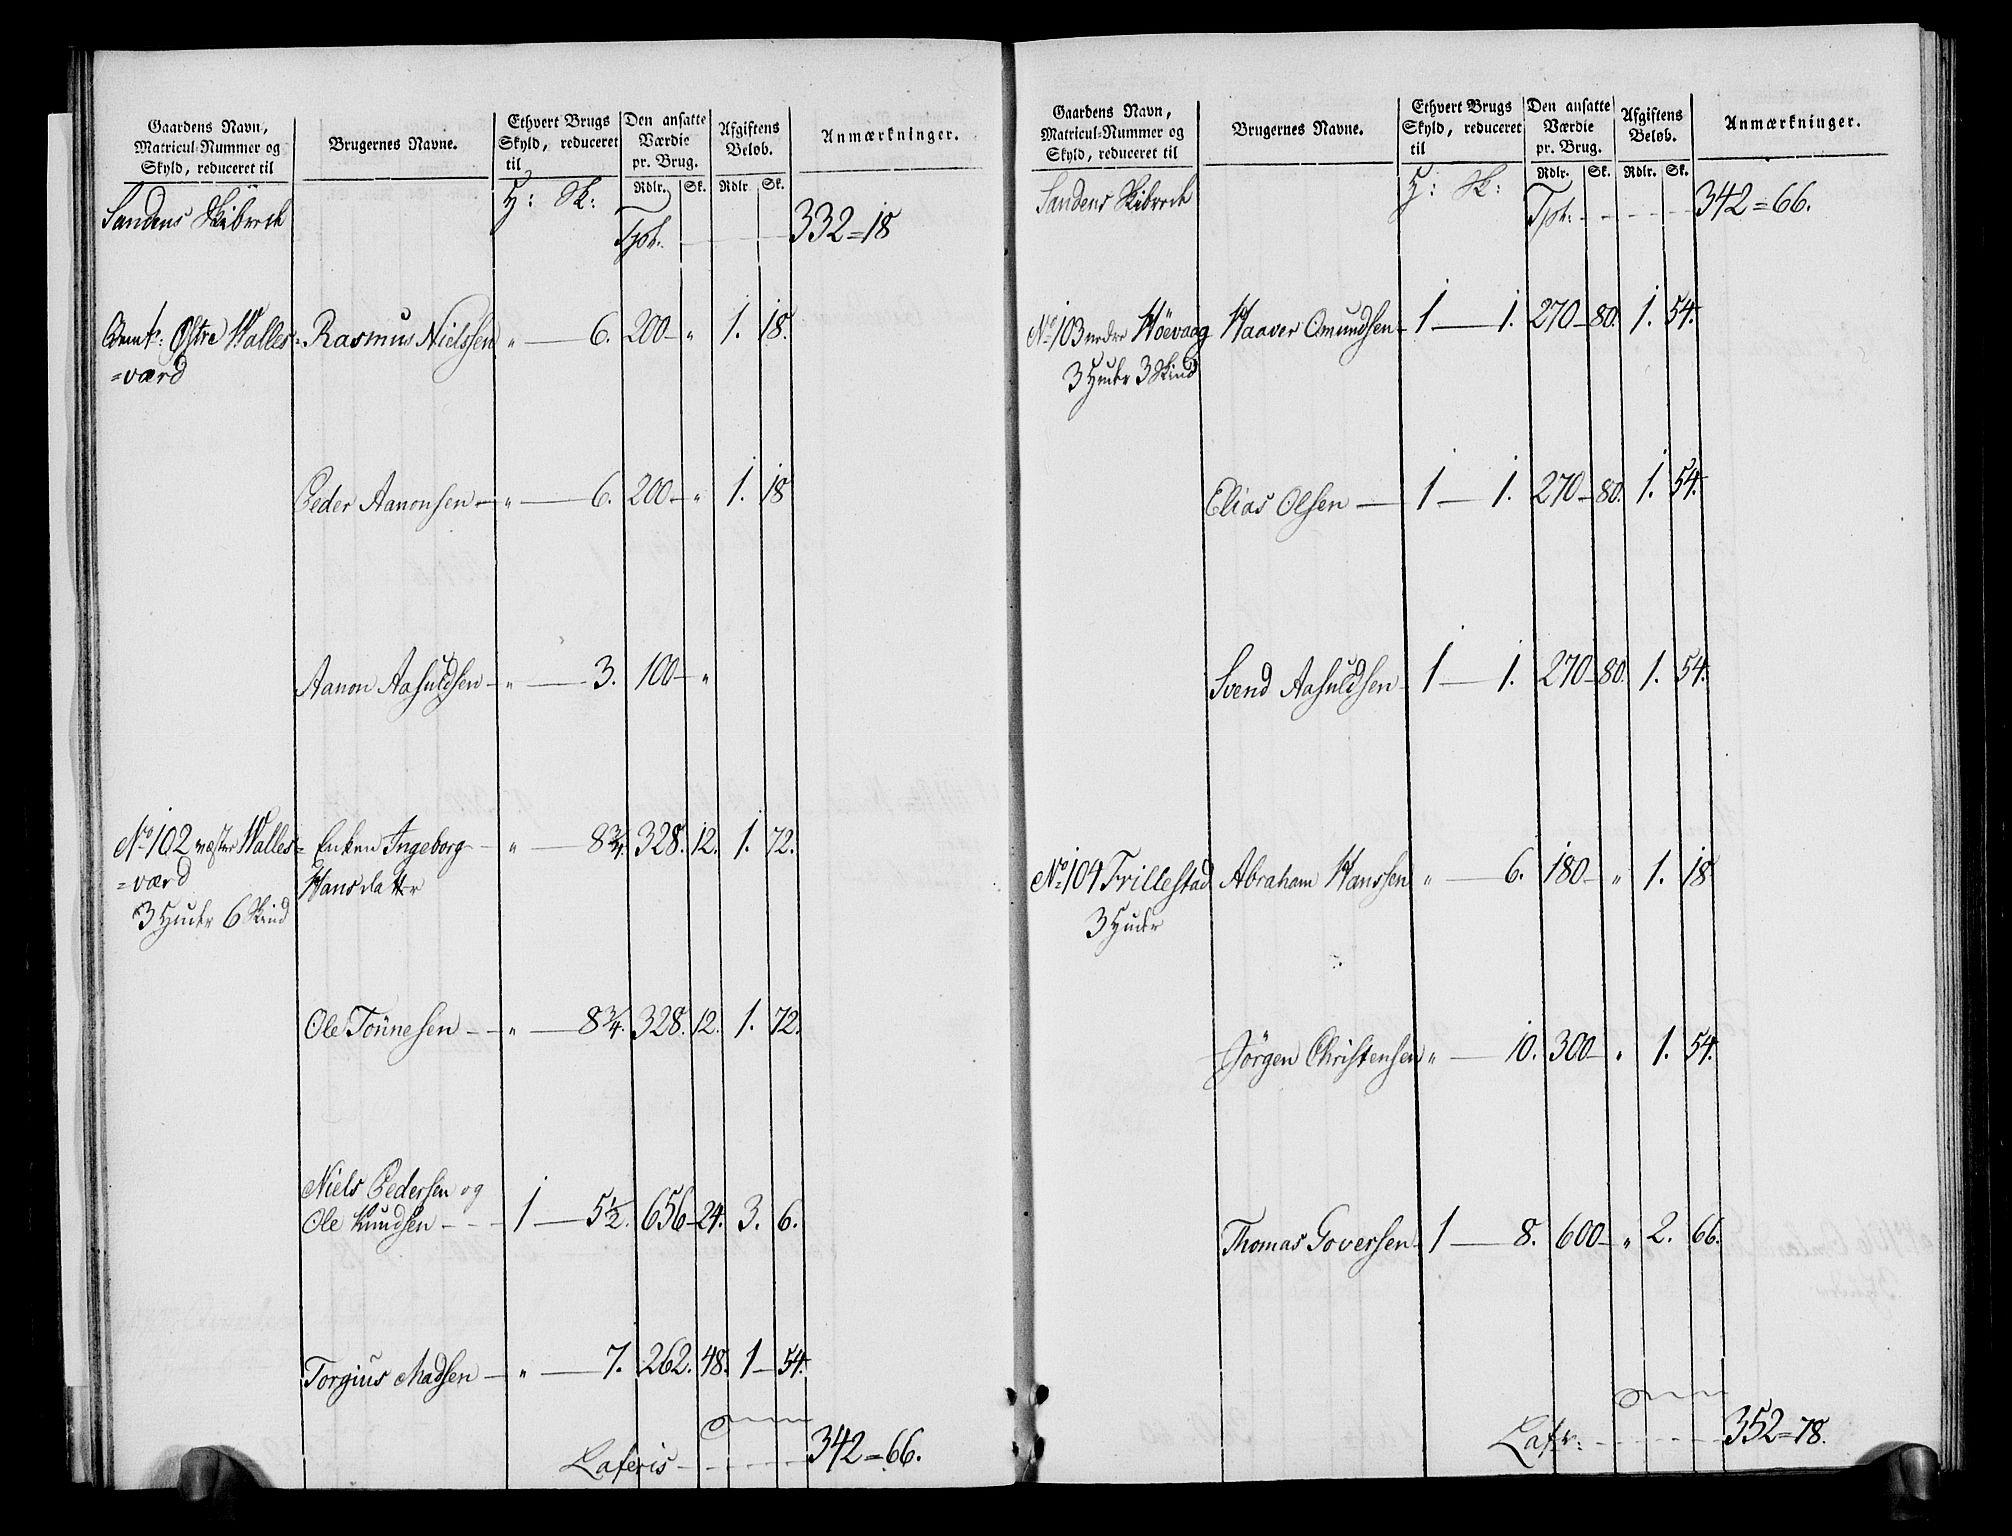 Gaardens Navn,
Matricul-Nummer og
Skyld, reduceret til
Brugernes Navne.
Ethvert Brugs
Skyld, reduceret
til
Den ansatte
Værdie
pr. Brug.
Rdlr. Sk.
Afgiftens
Beløb.
Rdlr. Sk.
Anmærkninger.
Sandens Skibrede H: Sk: Tspt. 332=18
Østre Walles= Rasmus Nielssen " 6. 200 " 1. 18.
=værd
Peder Aanonsen " 6. 200 " 1. 18
Aanon Aasuldsen " 3. 100 "
No 102 vester Walles= Enken Ingeborg " 8 3/4. 328. 12. 1. 72.
=værd Hansdatter
3 Huder 6 Skind
Ole Tönnesen " 8 3/4. 328. 12. 1. 72.
Niels Pedersen og
Ole Knudsen 1 5 1/2. 656 24. 3. 6.
Torgius Madsen " 7. 262. 48. 1 54.
Lateris 342=66.
Gaardens Navn,
Matricul-Nummer og
Skyld, reduceret til
Brugernes Navne.
Ethvert Brugs
Skyld, reduceret
til
Den ansatte
Værdie
pr. Brug.
Rdlr. Sk.
Afgiftens
Beløb.
Rdlr. Sk.
Anmærkninger.
Sandens Skibrede H: Sk: Tspt. 342=66.
No 103 nedre Höevaag Haaver Omundsen 1 1. 270 80. 1. 54.
3 Huder 3 Skind
Elias Olsen 1 1. 270 80. 1. 54.
Svend Aasuldsen 1 1. 270 80. 1. 54.
No 104 Trillestad Abraham Hanssen " 6. 180 " 1. 18
3 Huder
Jörgen Christensen " 10. 300 " 1. 54.
Thomas Goversen 1 8. 600 " 2. 66.
Latr: 352=78.